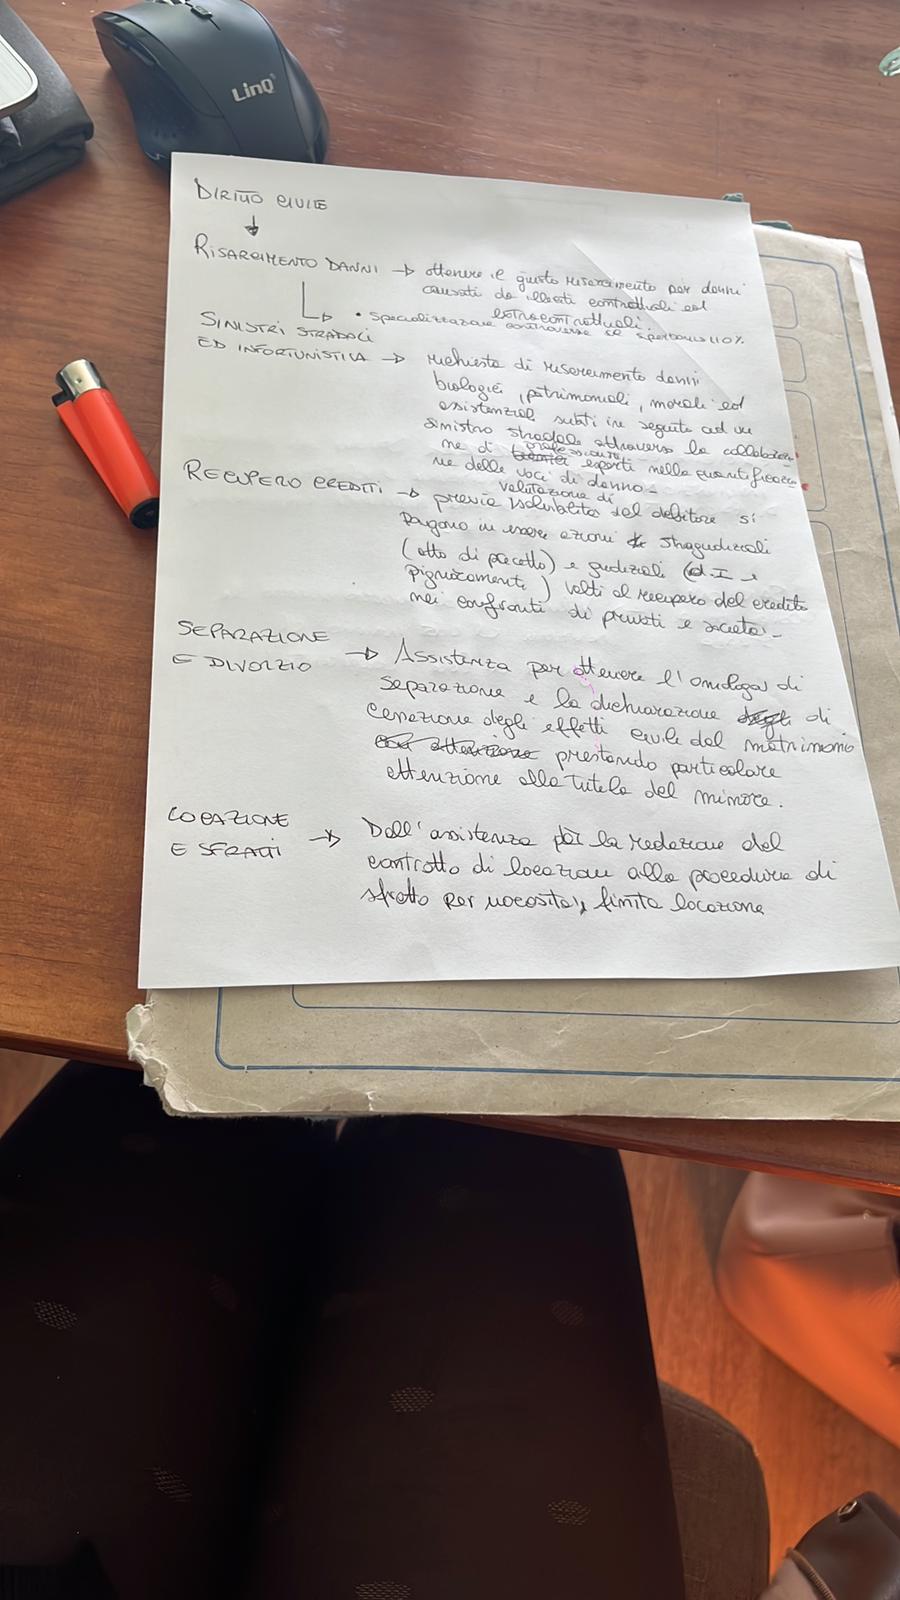 LinQ
DIRITTO CIVILE
RISARCIMENTO DANNI → ottenere il giusto risarcimento per danni
causati da illeciti contrattuali ed
extracontrattuali.
• Specializzazione controversie
SINISTRI STRADALI
ED INFORTUNISTICA → richiesta di risarcimento danni
biologici, patrimoniali, morali ed
esistenziali subiti in seguito ad un
sinistro stradale attraverso la collaborazio
ne di professionisti esperti nella quantificazio
ne delle voci di danno -
valutazione di
RECUPERO CREDITI → previa solvibilità del debitore si
pongono in essere azioni stragiudiziali
(atto di precetto) e giudiziali (d.I e
pignoramenti) volti al recupero del credito
nei confronti di privati e società -
SEPARAZIONE
E DIVORZIO → Assistenza per ottenere l'omologa di
separazione e la dichiarazione di
cessazione degli effetti civili del matrimonio
prestando particolare
attenzione alla tutela del minore.
LOCAZIONE
E SFRATTI → Dall'assistenza per la redazione del
contratto di locazione alla procedura di
sfratto per morosità, finita locazione